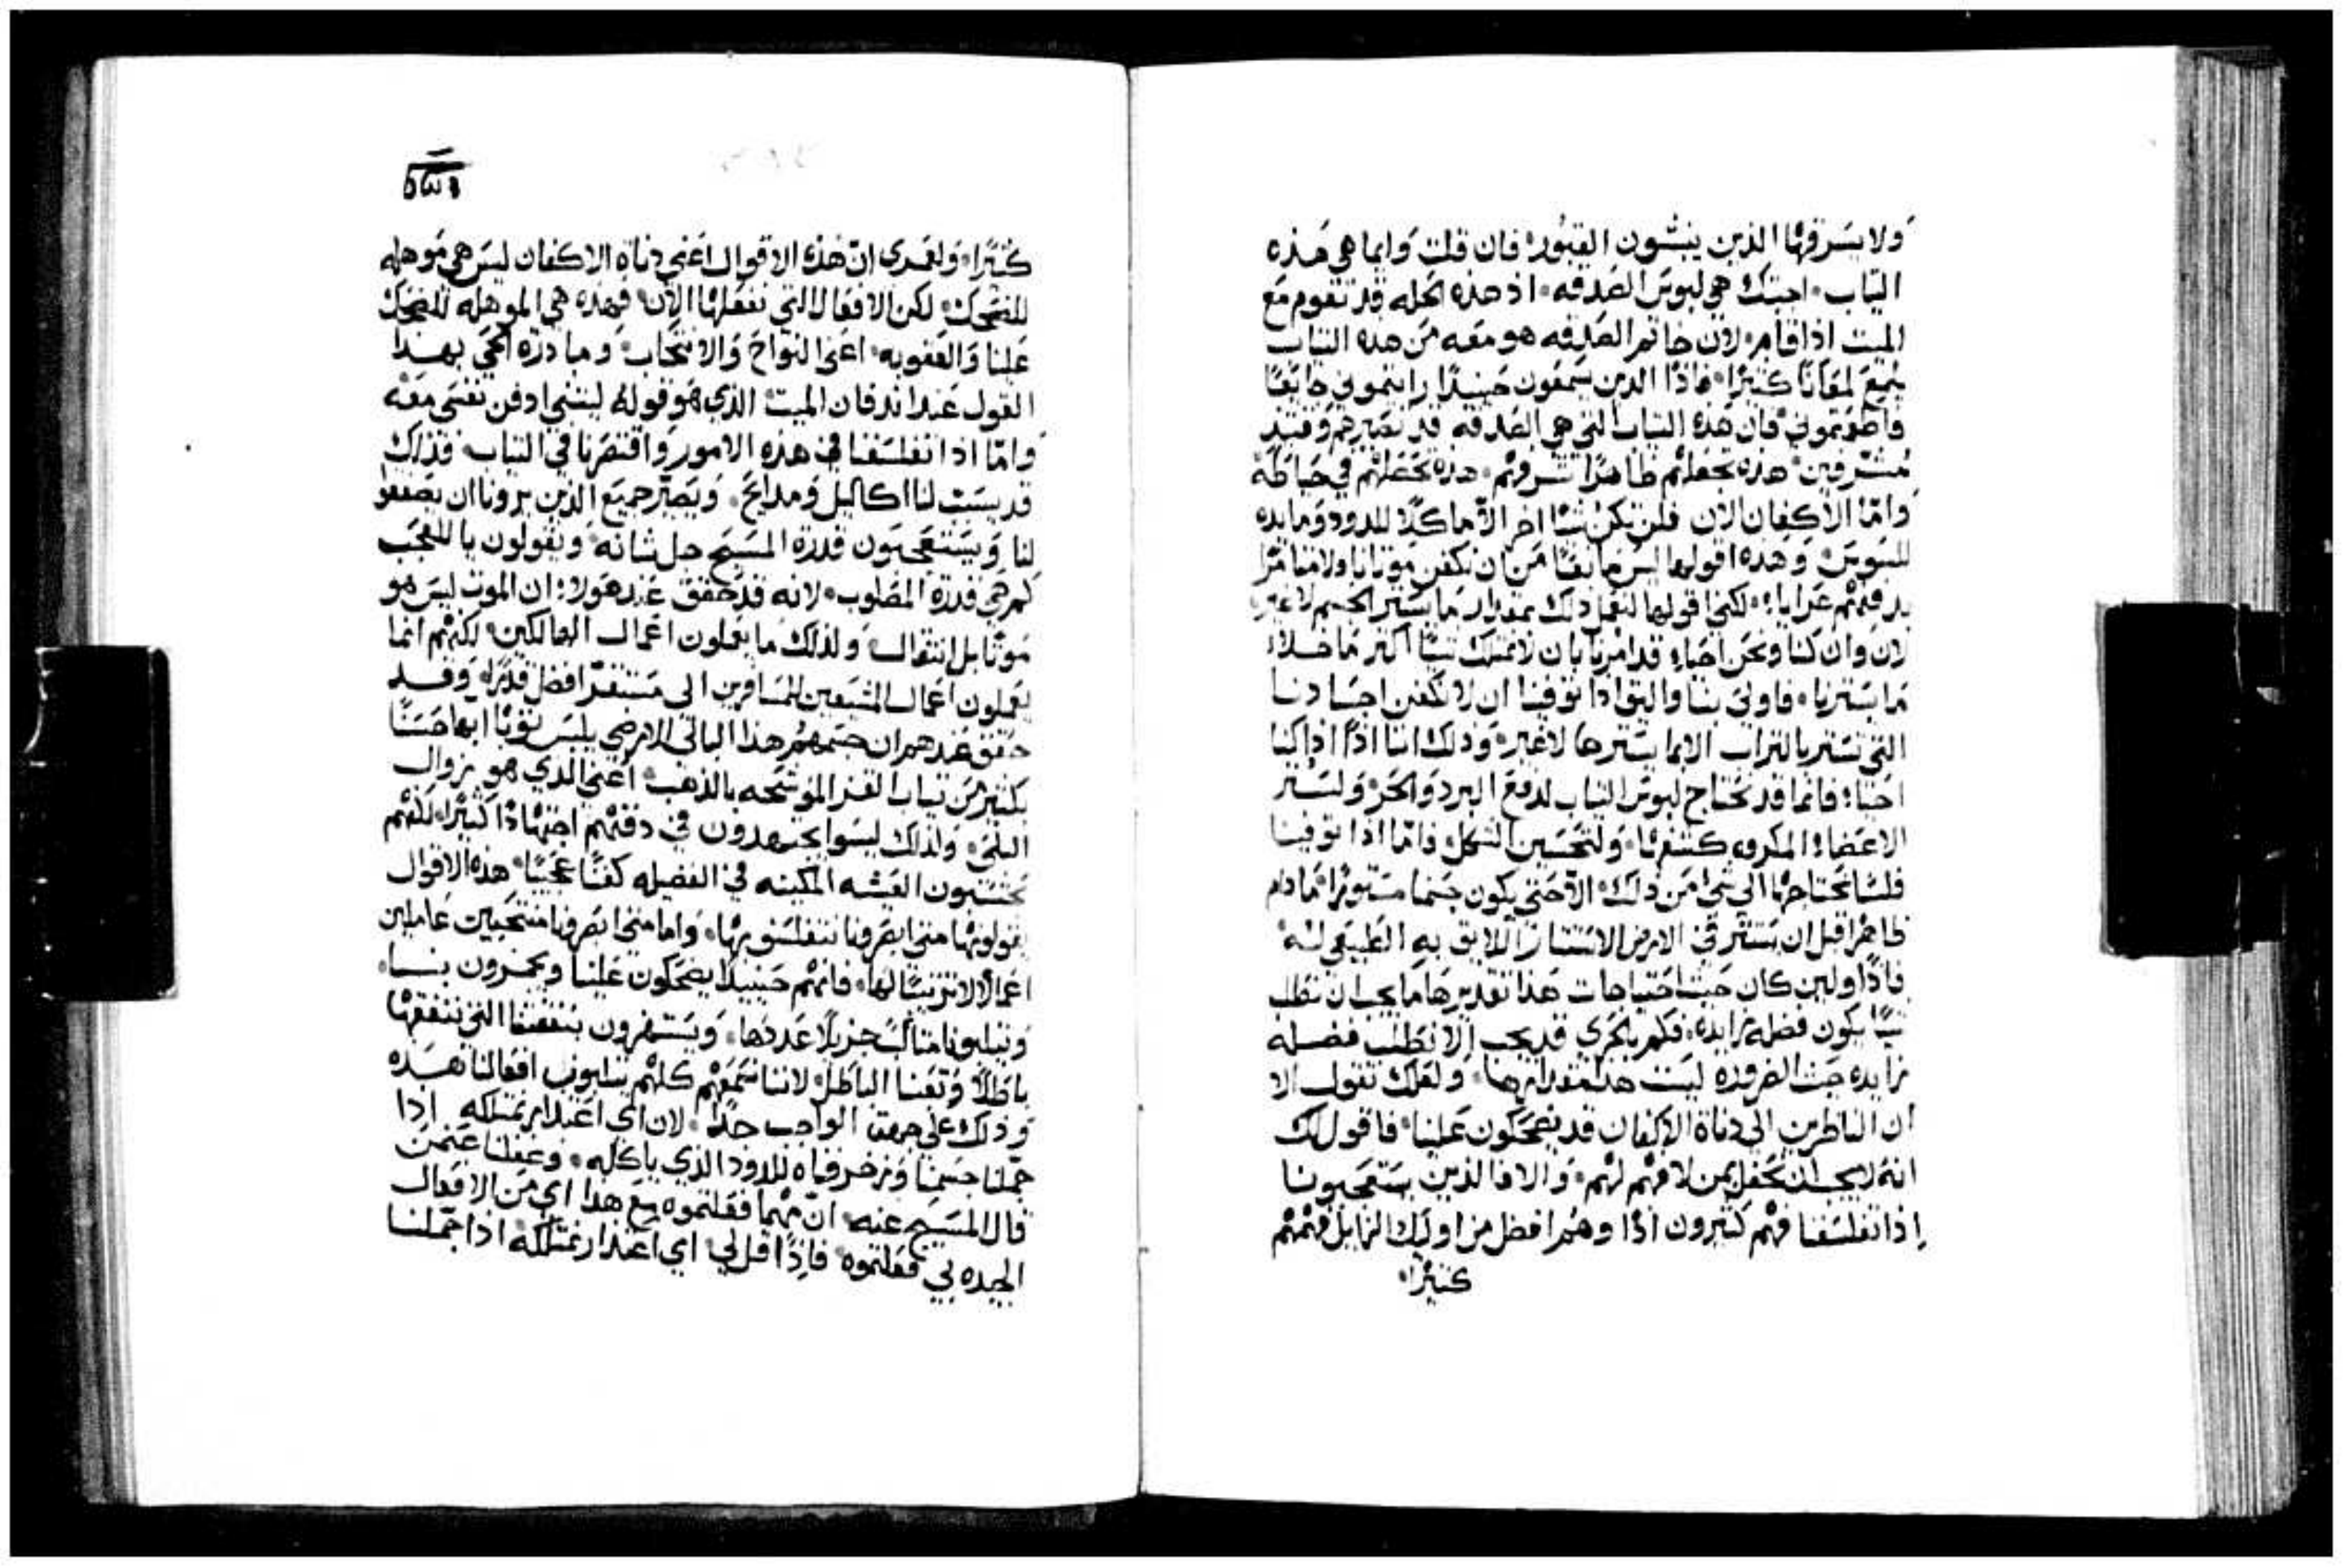 ولا يسرقها الذين ينبشون القبور فان قلت وايما هي هذه
الثياب اجبتك هي لبوس الصدقه اذ هذه الحله قد تقوم مع
الميت اذا قام لان خاتم الصدقه هو معه من هذه الثياب
يلمع لمعانًا كثيرًا فاذًا الذين يسمعون حينيذًا رايتموني جايعًا
واطعمتموني فان هذه الثياب التي هي الصدقه قد تصيرهم وقتيذ
مشرفين هذه تجعلهم ظاهرًا شرفهم هذه تجعلهم في حياطة
واما الاكفان الان فلن تكن شيًا اخر الا ماكلًا للدود ومايده
للسوس وهذه اقولها ليس مانعًا من ان نكفن موتانا ولا مامرًا
بدفنهم عرايا لكني اقولها لنعمل ذلك بمقدار ما يستر الجسم لا غير
لان وان كنا ونحن احياء قد امرنا بان لا نمتلك شيًا اكثر ما خلا
ما يسترنا فاولى بنا واليق اذا توفينا ان لا نكفن اجسادنا
التي تستر بالتراب الا بما يسترها لا غير وذلك اننا اذًا اذا كنا
احياء فانما قد نحتاج لبوس الثياب لدفع البرد والحر ولستر
الاعضاء المكروه كشفها ولتحسين الشكل فاما اذا توفينا
فلسنا نحتاجها الى شي من ذلك الا حتى يكون جسمنا مستورًا ما دام
ظاهرًا قبل ان يستتر في الارض الاستتار اللايق به الطبيعي له
فاذًا ولين كان حيث احتياجات هذا تقديرها ما يجب ان نطلب
شيًا يكون فضله زايده فكم بالحري قد يجب الا نطلب فضله
زايده حيث الضروره ليست هذا مقدارها ولعلك تقول الا
ان الناظرين الى دناة الاكفان قد يضحكون علينا فاقول لك
انه لا يجب ان نحفل بمن لا فهم لهم والا فالذين يستعجبونا
اذا تفلسفنا فهم كثيرون اذًا وهم افضل من اوليك الزايل فهمهم
كثيرًا
كثيرًا ولعمري ان هذه الاقوال اعني دناة الاكفان ليس هي موهله
للضحك لكن الافعال التي نفعلها الان فهذه هي الموهله للضحك
علينا والعقوبه اعني النواح والانتحاب ومبادرة الحي بهذا
القول عند اندفان الميت الذي هو قوله ليتني ادفن نفسي معه
واما اذا تفلسفنا في هذه الامور واقتصرنا في الثياب فذلك
لنا اكاليل ومدايح ويصير جميع الذين يرونا ان يصفقوا
لنا ويستعجبون قدرة المسيح جل شانه ويقولون يا للعجب
كم هي قدرة المصلوب لانه قد حقق عند هولاء ان الموت ليس هو
موتًا بل انتقال ولذلك ما يعملون اعمال الهالكين لكنهم انما
يعملون اعمال المشيعين المسافرين الى مستقر افضل قدرًا وقد
حقق عندهم ان جسمهم هذا البالي الارضي يلبس ثوبًا ابها حسنًا
بكثير من ثياب القز الموشحه بالذهب اعني الذي هو زوال
البلى ولذلك ليسوا يجتهدون في دفنهم اجتهادًا كثيرًا لكنهم
يحتسبون العيشه المكينه في الفضيله كفنًا عجيبًا هذه الاقوال
يقولونها متى ابصرونا نتفلسف بها واما متى ابصرونا منتحبين عاملين
اعمالًا لا ترتيب لها فانهم حينيذًا يضحكون علينا ويسخرون بنا
ويثلبونا مثالب جزيلًا عددها ويستهزون بنفقتنا التي ننفقها
باطلًا وتعبنا الباطل لاننا نسمعهم كلهم يثلبون افعالنا هذه
وذلك على جهة الواجب جدًا لان اي اعتذار نمتلكه اذا
جملنا جسمنا وزخرفناه للدود الذي ياكله وغفلنا عمن
قال المسيح عنه ان مهما فعلتموه مع هذا اي من الافعال
الجيده بي فعلتموه فاذًا قل لي اي اعتذار نمتلكه اذا جملنا